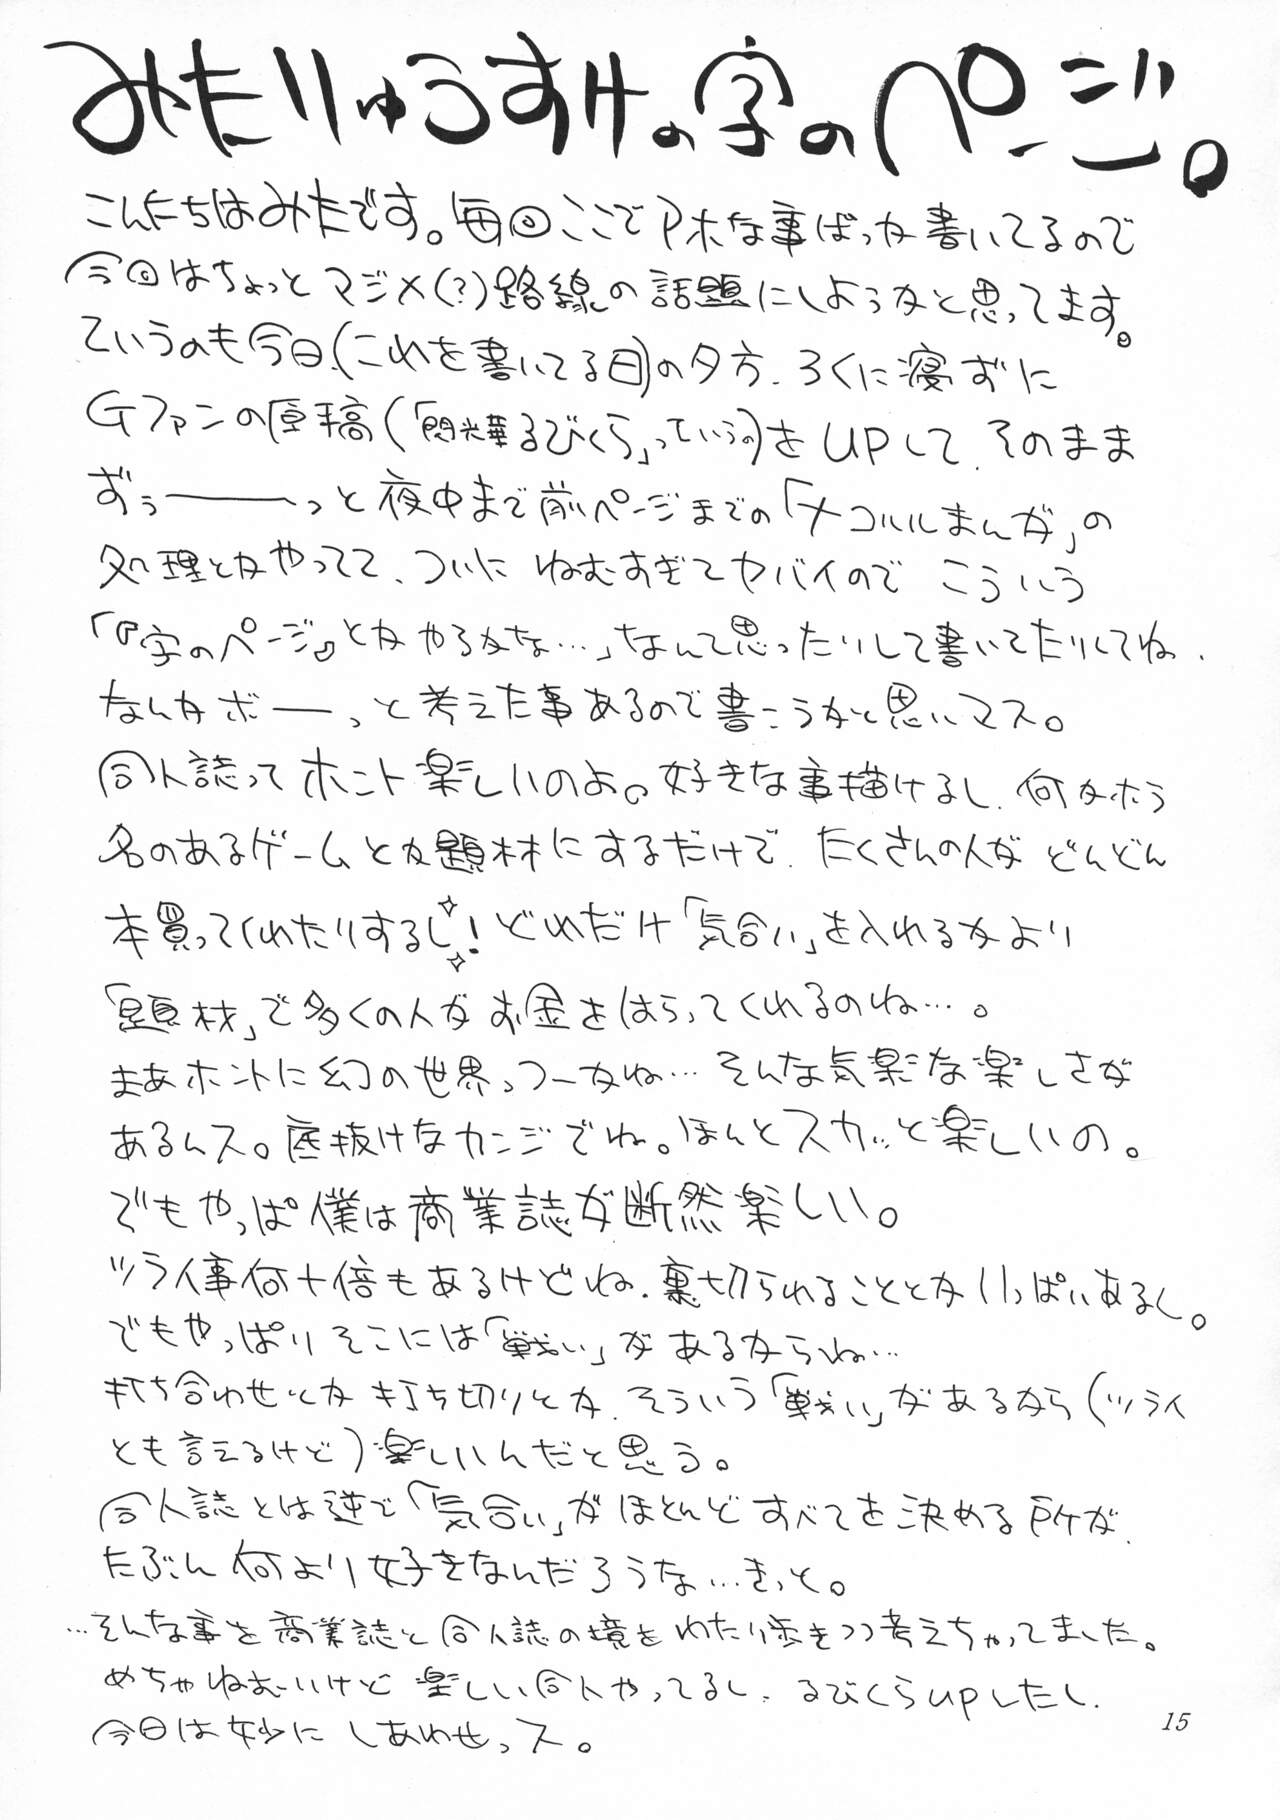 みたりゅうすけの字のページ。
こんにちはみたです。毎回ここでアホな事ばっか書いてるので
今回はちょっとマジメ(?)路線の話題にしようかと思ってます。
ていうのも今日、(これを書いてる日)の夕方、ろくに寝ずに
Gファンの原稿(「閃光華るびくら」っていうの)をUPして、そのまま
ずぅ―――っと夜中まで前ページまでの「ナコルルまんが」の
処理とかやってて、ついにねむすぎてヤバイので こういう
「『字のページ』とかやるかな…」なんて思ったりして書いてたりしてね、
なんかボーーっと考えた事あるので書こうかと思いマス。
同人誌ってホント楽しいのよ。好きな事描けるし、何かホラ
名のあるゲームとか題材にするだけで、たくさんの人が どんどん
本買ってくれたりするし!どれだけ「気合い」を入れるかより
「題材」で多くの人がお金をはらってくれるのね…。
まあホントに幻の世界っつーかね…そんな気楽な楽しさが
あるんス。底抜けなカンジでね。ほんとスカッと楽しいの。
でもやっぱ僕は商業誌が断然楽しい。
ツライ事何十倍もあるけどね、裏切られることとかいっぱいあるし。
でもやっぱりそこには「戦い」があるからね…
打ち合わせとか打ち切りとか、そういう「戦い」があるから(ツライ
とも言えるけど)楽しいんだと思う。
同人誌とは逆で「気合い」がほとんどすべてを決める所が、
たぶん何より好きなんだろうな…きっと。
…そんな事を商業誌と同人誌の境をわたり歩きつつ考えちゃってました。
めちゃねむーいけど 楽しい同人やってるし、るびくらUPしたし、
今日は妙に しあわせっス。
15